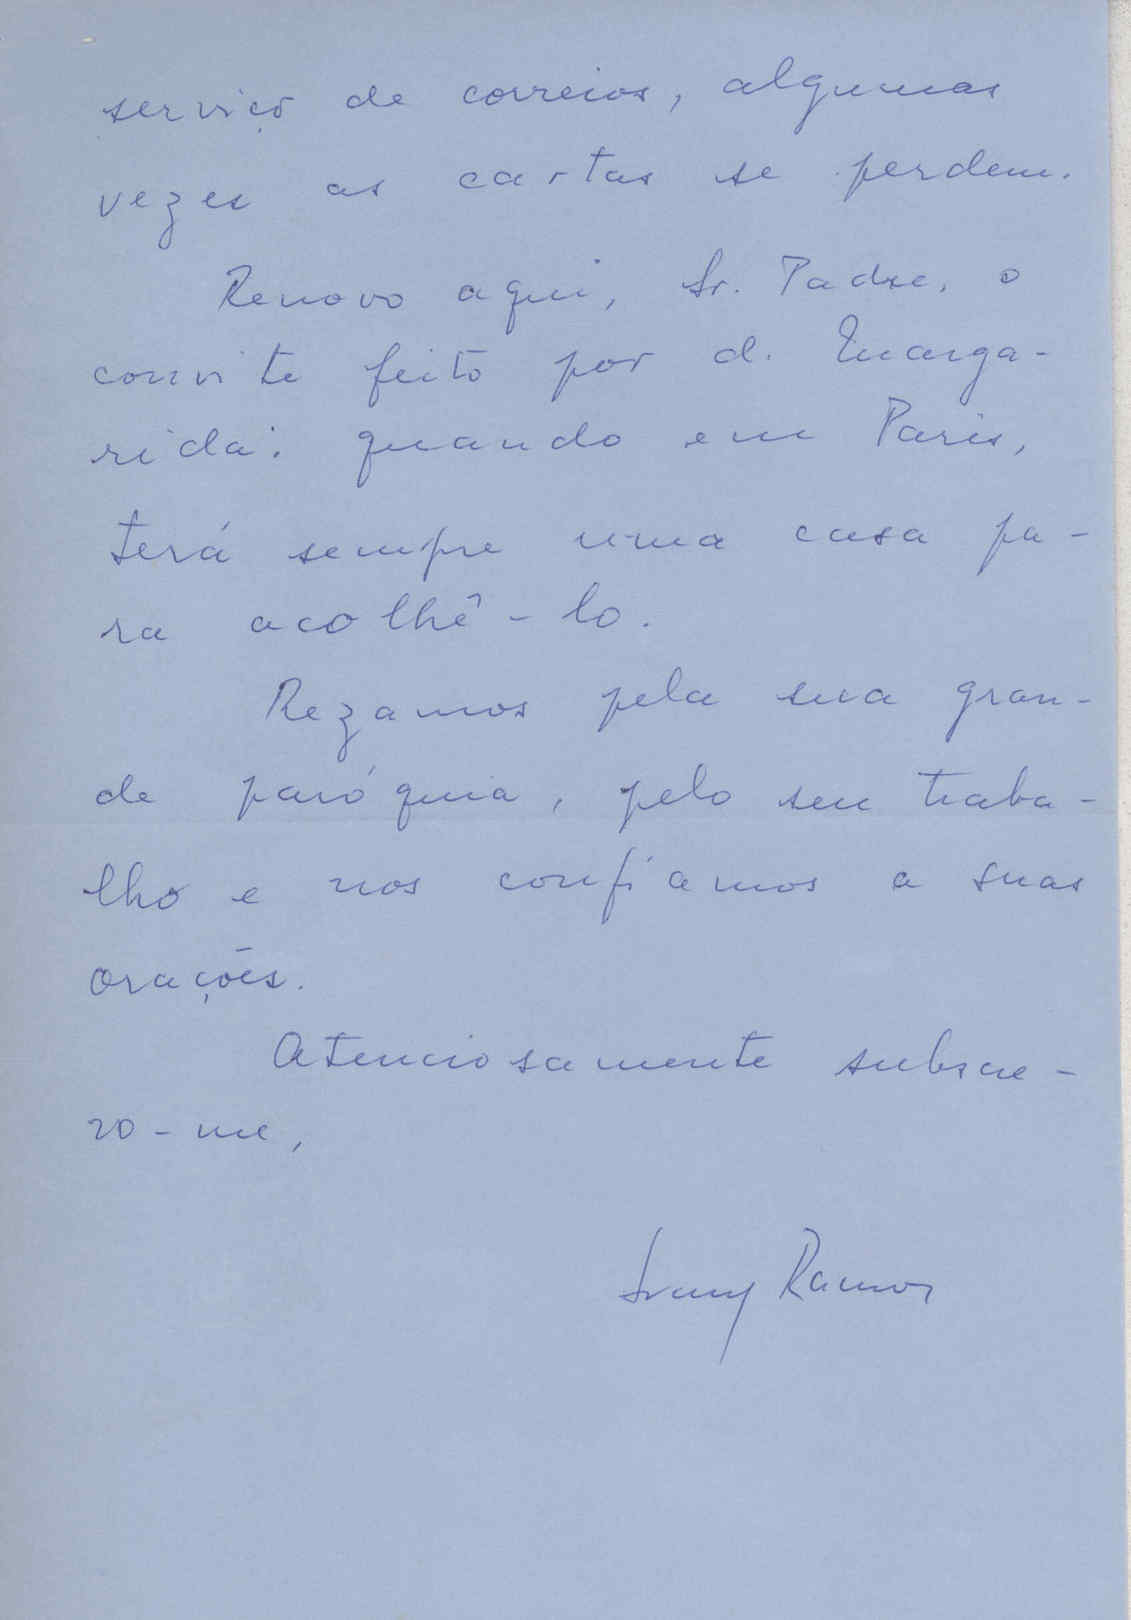 serviço de correios, algumas
vezes as cartas se perdem.
Renovo aqui, Sr. Padre, o
convite feito por d. Marga-
rida: quando em Paris,
terá sempre uma casa pa-
ra acolhê-lo.
Rezamos pela sua gran-
de paróquia, pelo seu traba-
lho e nos confiamos a suas
orações.
Atenciosamente subscre-
vo-me,
Ramos